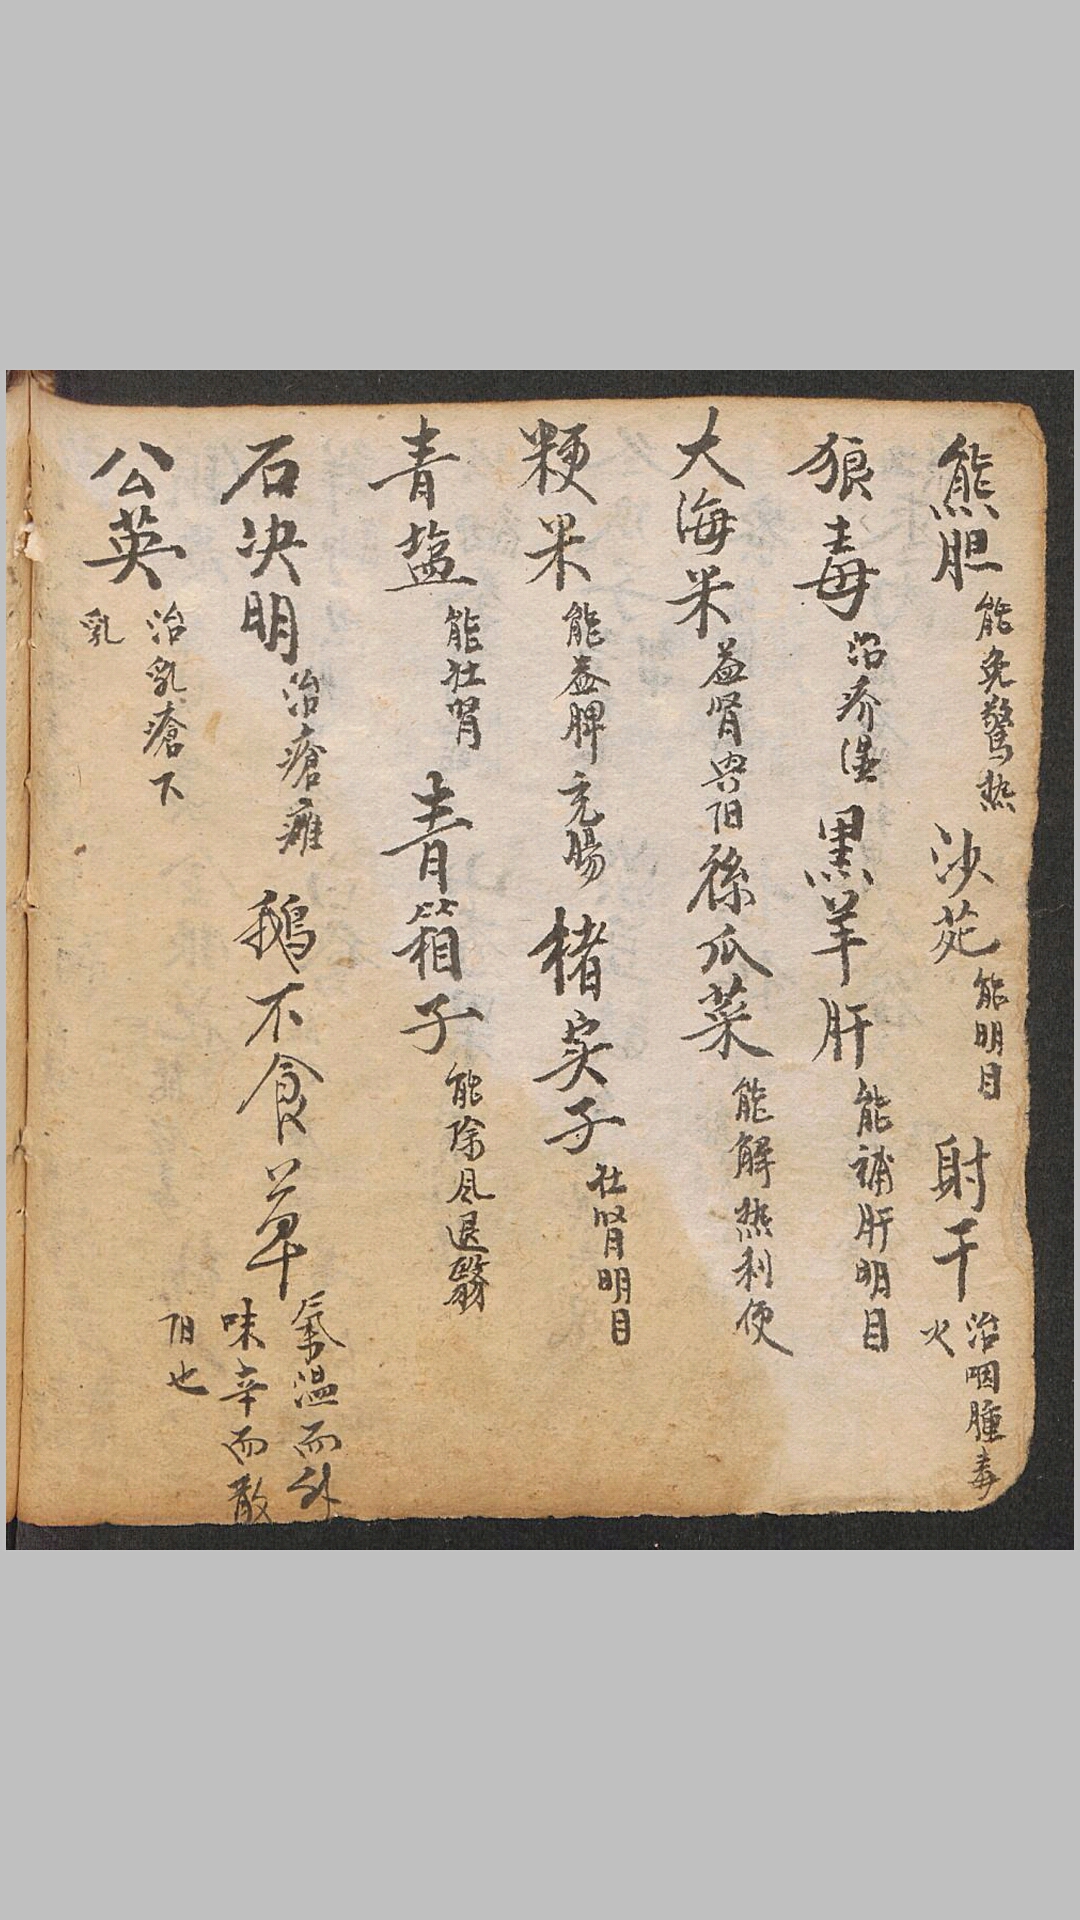 熊胆能免驚热 沙苑能明目 射干治咽腫毒火
狼毒治疥湿 黑羊肝能補肝明目
大海米益肾兴阳 絲瓜菜能解热利便
粳米能益脾充腸 楮实子壮肾明目
青盐能壮肾 青箱子能除风退翳
石决明治瘡癱 鵝不食草氣温而升味辛而散阳也
公英治乳瘡下乳